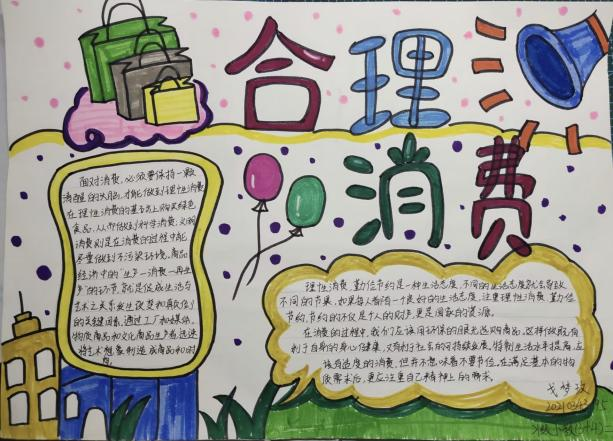 合理
消费
面对消费，必须要保持一颗
清醒的头脑，才能做到理性消费
在理性消费的基础上购买绿色
食品，从而做到科学消费，文明
消费则是在消费的过程中能
尽量做到不污染环境。商品
经济中的"生产—消费—再生
产"的环节，就是促成生活与
艺术之关系发生改变和商代化
的关键因素，通过工厂和媒体，
物质商品和文化商品生产者迅速
将艺术想象制造成商品和时
尚
理性消费，勤俭节约是一种生活态度，不同的生活态度就会导致
不同的节果，如果每人都有一个良好的生活态度，注重理性消费，勤俭
节约，节约的不仅是个人的财产，更是国家的资源。
在消费的过程中，我们应该用环保的目光选购商品，这样做既有
利于自身的身心健康，又有利于社会的可持续发展，特制生活水平提高，应
该有适度的消费，但并不意味着不要节俭，在满足基本的物
质需求后，更应注重自己精神上的需求。
戈梦